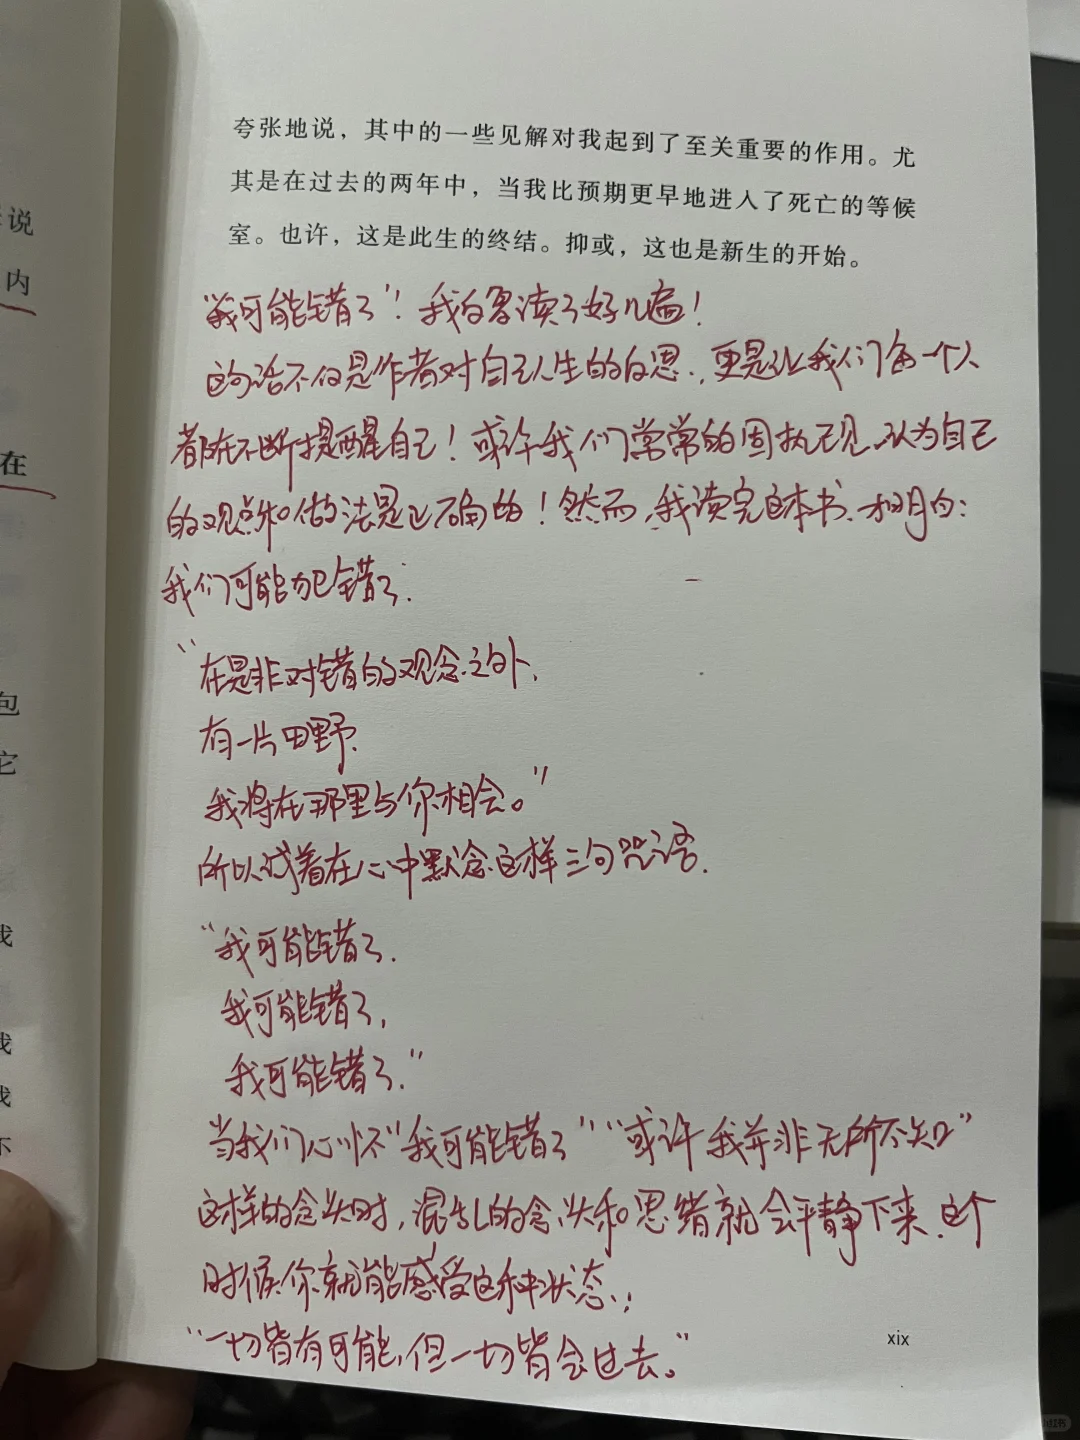 夸张地说，其中的一些见解对我起到了至关重要的作用。尤
其是在过去的两年中，当我比预期更早地进入了死亡的等候
室。也许，这是此生的终结。抑或，这也是新生的开始。
“我可能错了”！我的客读了好几遍！
这句话不仅是作者对自己人生的反思，更是让我们每一个人
都在不断提醒自己！或许我们常常的固执己见、认为自己
的观点和做法是正确的！然而，我读完这本书、才明白：
我们可能犯错了.
“在是非对错的观念之外、
有一片田野.
我将在那里与你相会。”
所以试着在心中默念这样三句咒语.
“我可能错了.
我可能错了,
我可能错了.”
当我们心怀“我可能错了”“或许我并非无所不知”
这样的念头时，混乱的念头和思绪就会平静下来.这个
时候你就能感受这种状态：
“一切皆有可能,但一切皆会过去。”
xix
说
内
在
包
它
我
我
我
不